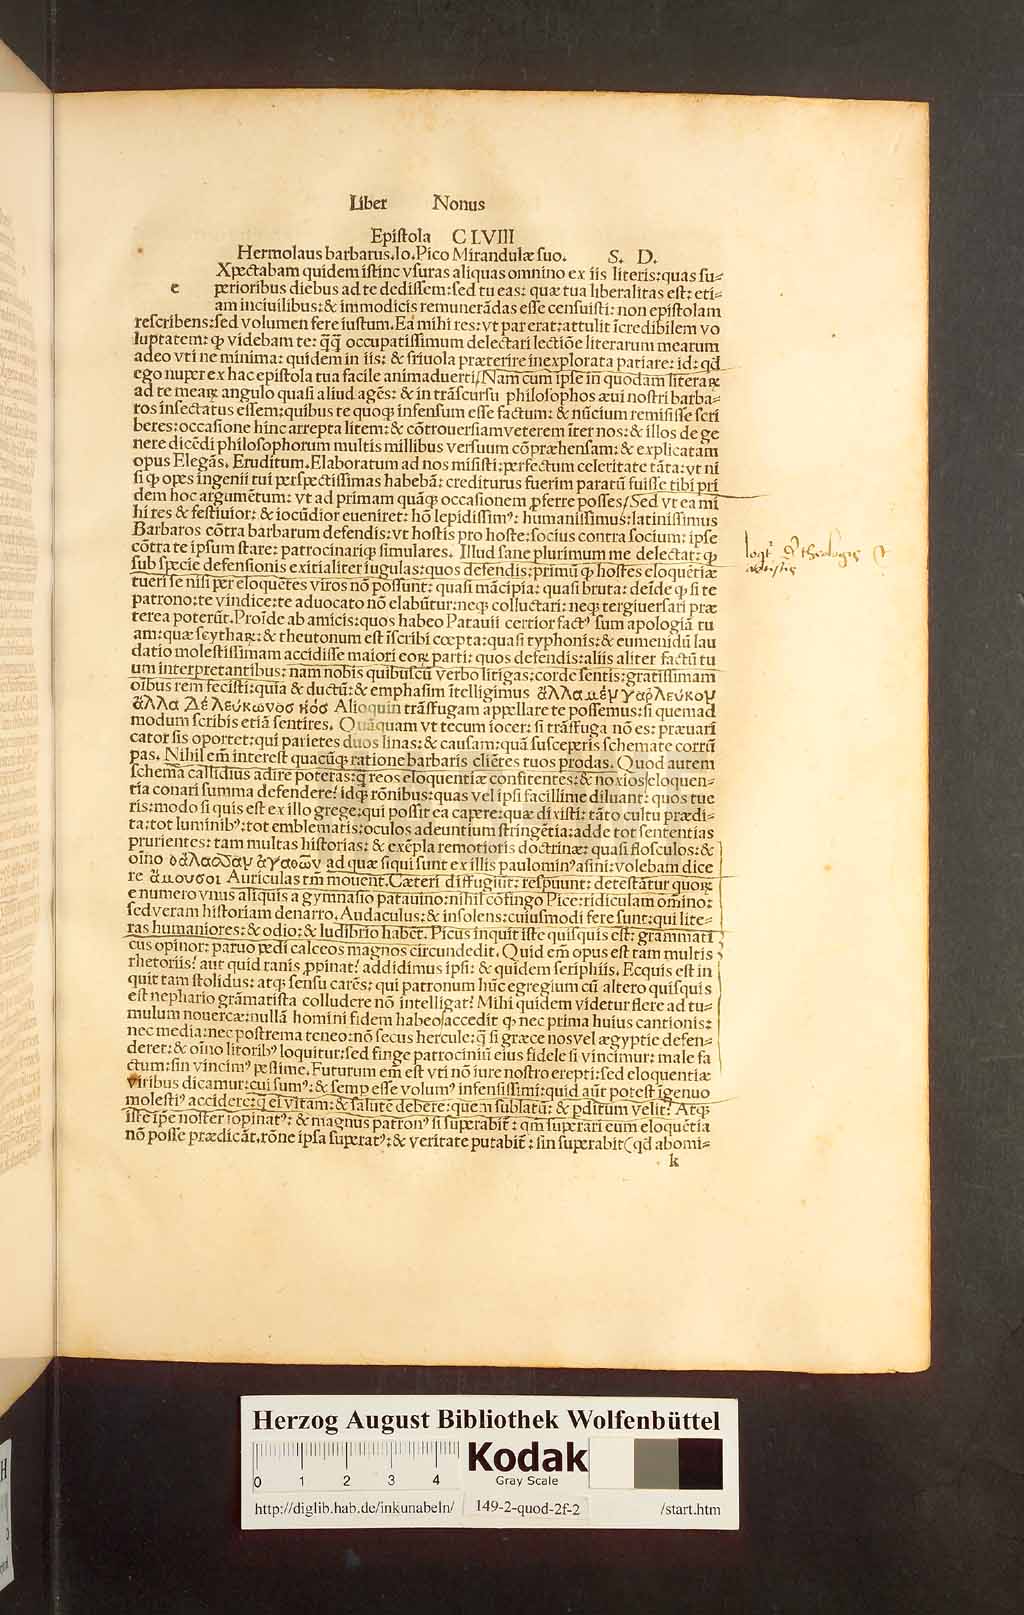 Liber Nonus
Epiſtola CLVIII
Hermolaus barbarus. Io. Pico Mirandulæ ſuo. S. D.
e Xpectabam quidem iſtinc vſuras aliquas omnino ex iis literis: quas ſu⸗
perioribus diebus ad te dediſſem: ſed tu eas: quæ tua liberalitas eſt: eti⸗
am inciuilibus: & immodicis remunerādas eſſe cenſuiſti: non epiſtolam
reſcribens: ſed volumen fere iuſtum. Ea mihi res: vt par erat: attulit īcredibilem vo
luptatem: ꝙ videbam te: q̄q̄ occupatiſſimum delectari lectiōe literarum mearum
adeo vti ne minima: quidem in iis: & friuola præterire inexplorata patiare: id: qd̄
ego nuper ex hac epiſtola tua facile animaduerti/ Nam cum ipſe in quodam literaꝝ
ad te meaꝝ angulo quaſi aliud agēs: & in trāſcurſu philoſophos æui noſtri barba⸗
ros inſectatus eſſem: quibus te quoqꝫ infenſum eſſe factum: & nūcium remiſiſſe ſcri
beres: occaſione hinc arrepta litem: & cōtrouerſiam veterem īter nos: & illos de ge
nere dicēdi philoſophorum multis millibus verſuum cōpræhenſam: & explicatam
opus Elegās. Eruditum. Elaboratum ad nos miſiſti: perfectum celeritate tāta: vt ni
ſi ꝙ opes ingenii tui perſpectiſſimas habebā: crediturus fuerim paratū fuiſſe tibi pri
dem hoc argumētum: vt ad primam quāqꝫ occaſionem ꝓferre poſſes/ Sed vt ea mi
hi res & feſtiuior: & iocūdior eueniret: hō lepidiſſimꝰ: humaniſſimus: latiniſſimus
Barbaros cōtra barbarum defendis: vt hoſtis pro hoſte: ſocius contra ſocium: ipſe
cōtra te ipſum ſtare: patrocinariqꝫ ſimulares. Illud ſane plurimum me delectat: ꝙ
ſub ſpecie defenſionis exitialiter iugulas: quos defendis: primū ꝙ hoſtes eloquētiæ
tueri ſe niſi per eloquētes viros nō poſſunt: quaſi mācipia: quaſi bruta: deīde ꝙ ſi te
patrono: te vindice: te aduocato nō elabūtur: neqꝫ colluctari: neqꝫ tergiuerſari præ
terea poterūt. Proīde ab amicis: quos habeo Patauii certior factꝰ ſum apologiā tu
am: quæ ſcythaꝝ: & theutonum eſt īſcribi cœpta: quaſi typhonis: & eumenidū lau
datio moleſtiſſimam accidiſſe maiori eoꝝ parti: quos defendis: aliis aliter factū tu
um interpretantibus: nam nobis quibuſcū verbo litigas: corde ſentis: gratiſſimam
oībus rem feciſti: quia & ductū: & emphaſim ītelligimus ἄλλα μὲν γαρ λεύκον
ἄλλα Δὲ λεύκωνοσ κὸσ Alioquin trāſfugam appellare te poſſemus: ſi quemad
modum ſcribis etiā ſentires. Quāquam vt tecum iocer: ſi trāſfuga nō es: præuari
cator ſis oportet: qui parietes duos linas: & cauſam: quā ſuſceperis ſchemate corrū
pas. Nihil em̄ intereſt quacūqꝫ ratione barbaris cliētes tuos prodas. Quod autem
ſchema callidius adire poteras: q̄ reos eloquentiæ confitentes: & noxios/ eloquen⸗
tia conari ſumma defendere? idqꝫ rōnibus: quas vel ipſi facillime diluant: quos tue
ris: modo ſi quis eſt ex illo grege: qui poſſit ea capere: quæ dixiſti: tāto cultu prædi⸗
ta: tot luminibꝰ: tot emblematis: oculos adeuntium ſtringētia: adde tot ſententias
prurientes: tam multas hiſtorias: & exēpla remotioris doctrinæ: quaſi floſculos: &
oīno ad quæ ſiqui ſunt ex illis paulominꝰ aſini: volebam dice
re ἄμουσοι Auriculas tm̄ mouent. Cæteri diffugiūt: reſpuunt: deteſtātur quoꝝ
e numero vnus aliquis a gymnaſio patauino: nihil cōfingo Pice: ridiculam omīno:
ſed veram hiſtoriam denarro. Audaculus: & inſolens: cuiuſmodi fere ſunt: qui lite⸗
ras humaniores: & odio: & ludibrio habēt. Picus inquit iſte quiſquis eſt: grammati
cus opinor: paruo pedi calceos magnos circundedit. Quid em̄ opus eſt tam multis
rhetoriis? aut quid ranis ꝓpinat? addidimus ipſi: & quidem ſeriphiis. Ecquis eſt in
quit tam ſtolidus: atqꝫ ſenſu carēs: qui patronum hūc egregium cū altero quiſquis
eſt nephario grāmatiſta colludere nō intelligat? Mihi quidem videtur flere ad tu⸗
mulum nouercæ: nullā homini fidem habeo/ accedit ꝙ nec prima huius cantionis:
nec media: nec poſtrema teneo: nō ſecus hercule: q̄ ſi græce nos vel ægyptie defen⸗
deret: & oīno litoribꝰ loquitur: ſed finge patrociniū eius fidele ſi vincimur: male fa
ctum: ſin vincimꝰ peſſime. Futurum em̄ eſt vti nō iure noſtro erepti: ſed eloquentiæ
viribus dicamur: cui ſumꝰ: & ſemp eſſe volumꝰ infenſiſſimi: quid aūt poteſt īgenuo
moleſtiꝰ accidere: q̄ ei vitam: & ſalutē debere: quem ſublatū: & ꝑditum velit? Atqꝫ
iſte ip̄e noſter ſopinatꝰ: & magnus patronꝰ ſi ſuperabit̄: qm̄ ſuperari eum eloquētia
nō poſſe prædicāt. rōne ipſa ſuperatꝰ: & veritate putabit̄: ſin ſuperabit (qd̄ abomi⸗
k
Herzog August Bibliothek Wolfenbüttel
0 1 2 3 4
Kodak
Gray Scale
http://diglib.hab.de/inkunabeln/ 149-2-quod-2f-2 /start.htm